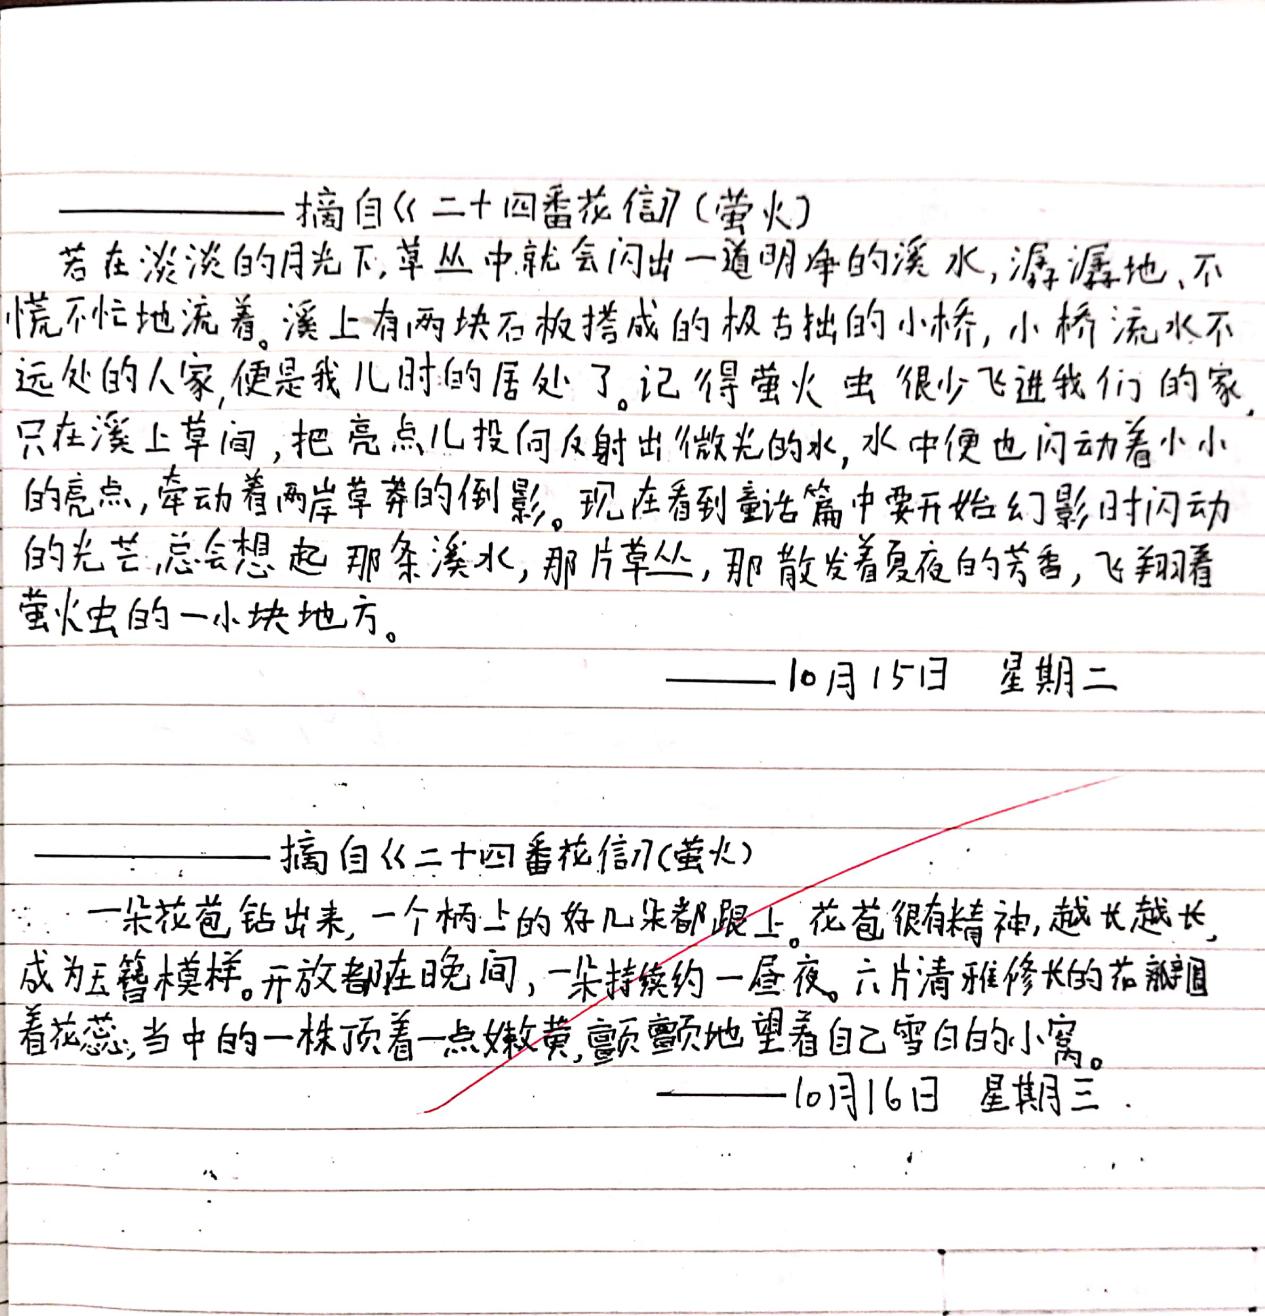 ——摘自《二十四番花信》(萤火)
若在淡淡的月光下,草丛中就会闪出一道明净的溪水,潺潺地、不
慌不忙地流着。溪上有两块石板搭成的极古拙的小桥,小桥流水不
远处的人家,便是我儿时的居处了。记得萤火虫很少飞进我们的家,
只在溪上草间,把亮点儿投向反射出微光的水,水中便也闪动着小小
的亮点,牵动着两岸草莽的倒影。现在看到童话篇中要开始幻影时闪动
的光芒,总会想起那条溪水,那片草丛,那散发着夏夜的芳香,飞翔着
萤火虫的一小块地方。
——10月15日 星期二
——摘自《二十四番花信》(萤火)
一朵花苞钻出来,一个柄上的好几朵都跟上。花苞很有精神,越长越长,
成为玉簪模样。开放都在晚间,一朵持续约一昼夜。六片清雅修长的花瓣围
着花蕊,当中的一株顶着一点嫩黄,颤颤地望着自己雪白的小窝。
——10月16日 星期三.